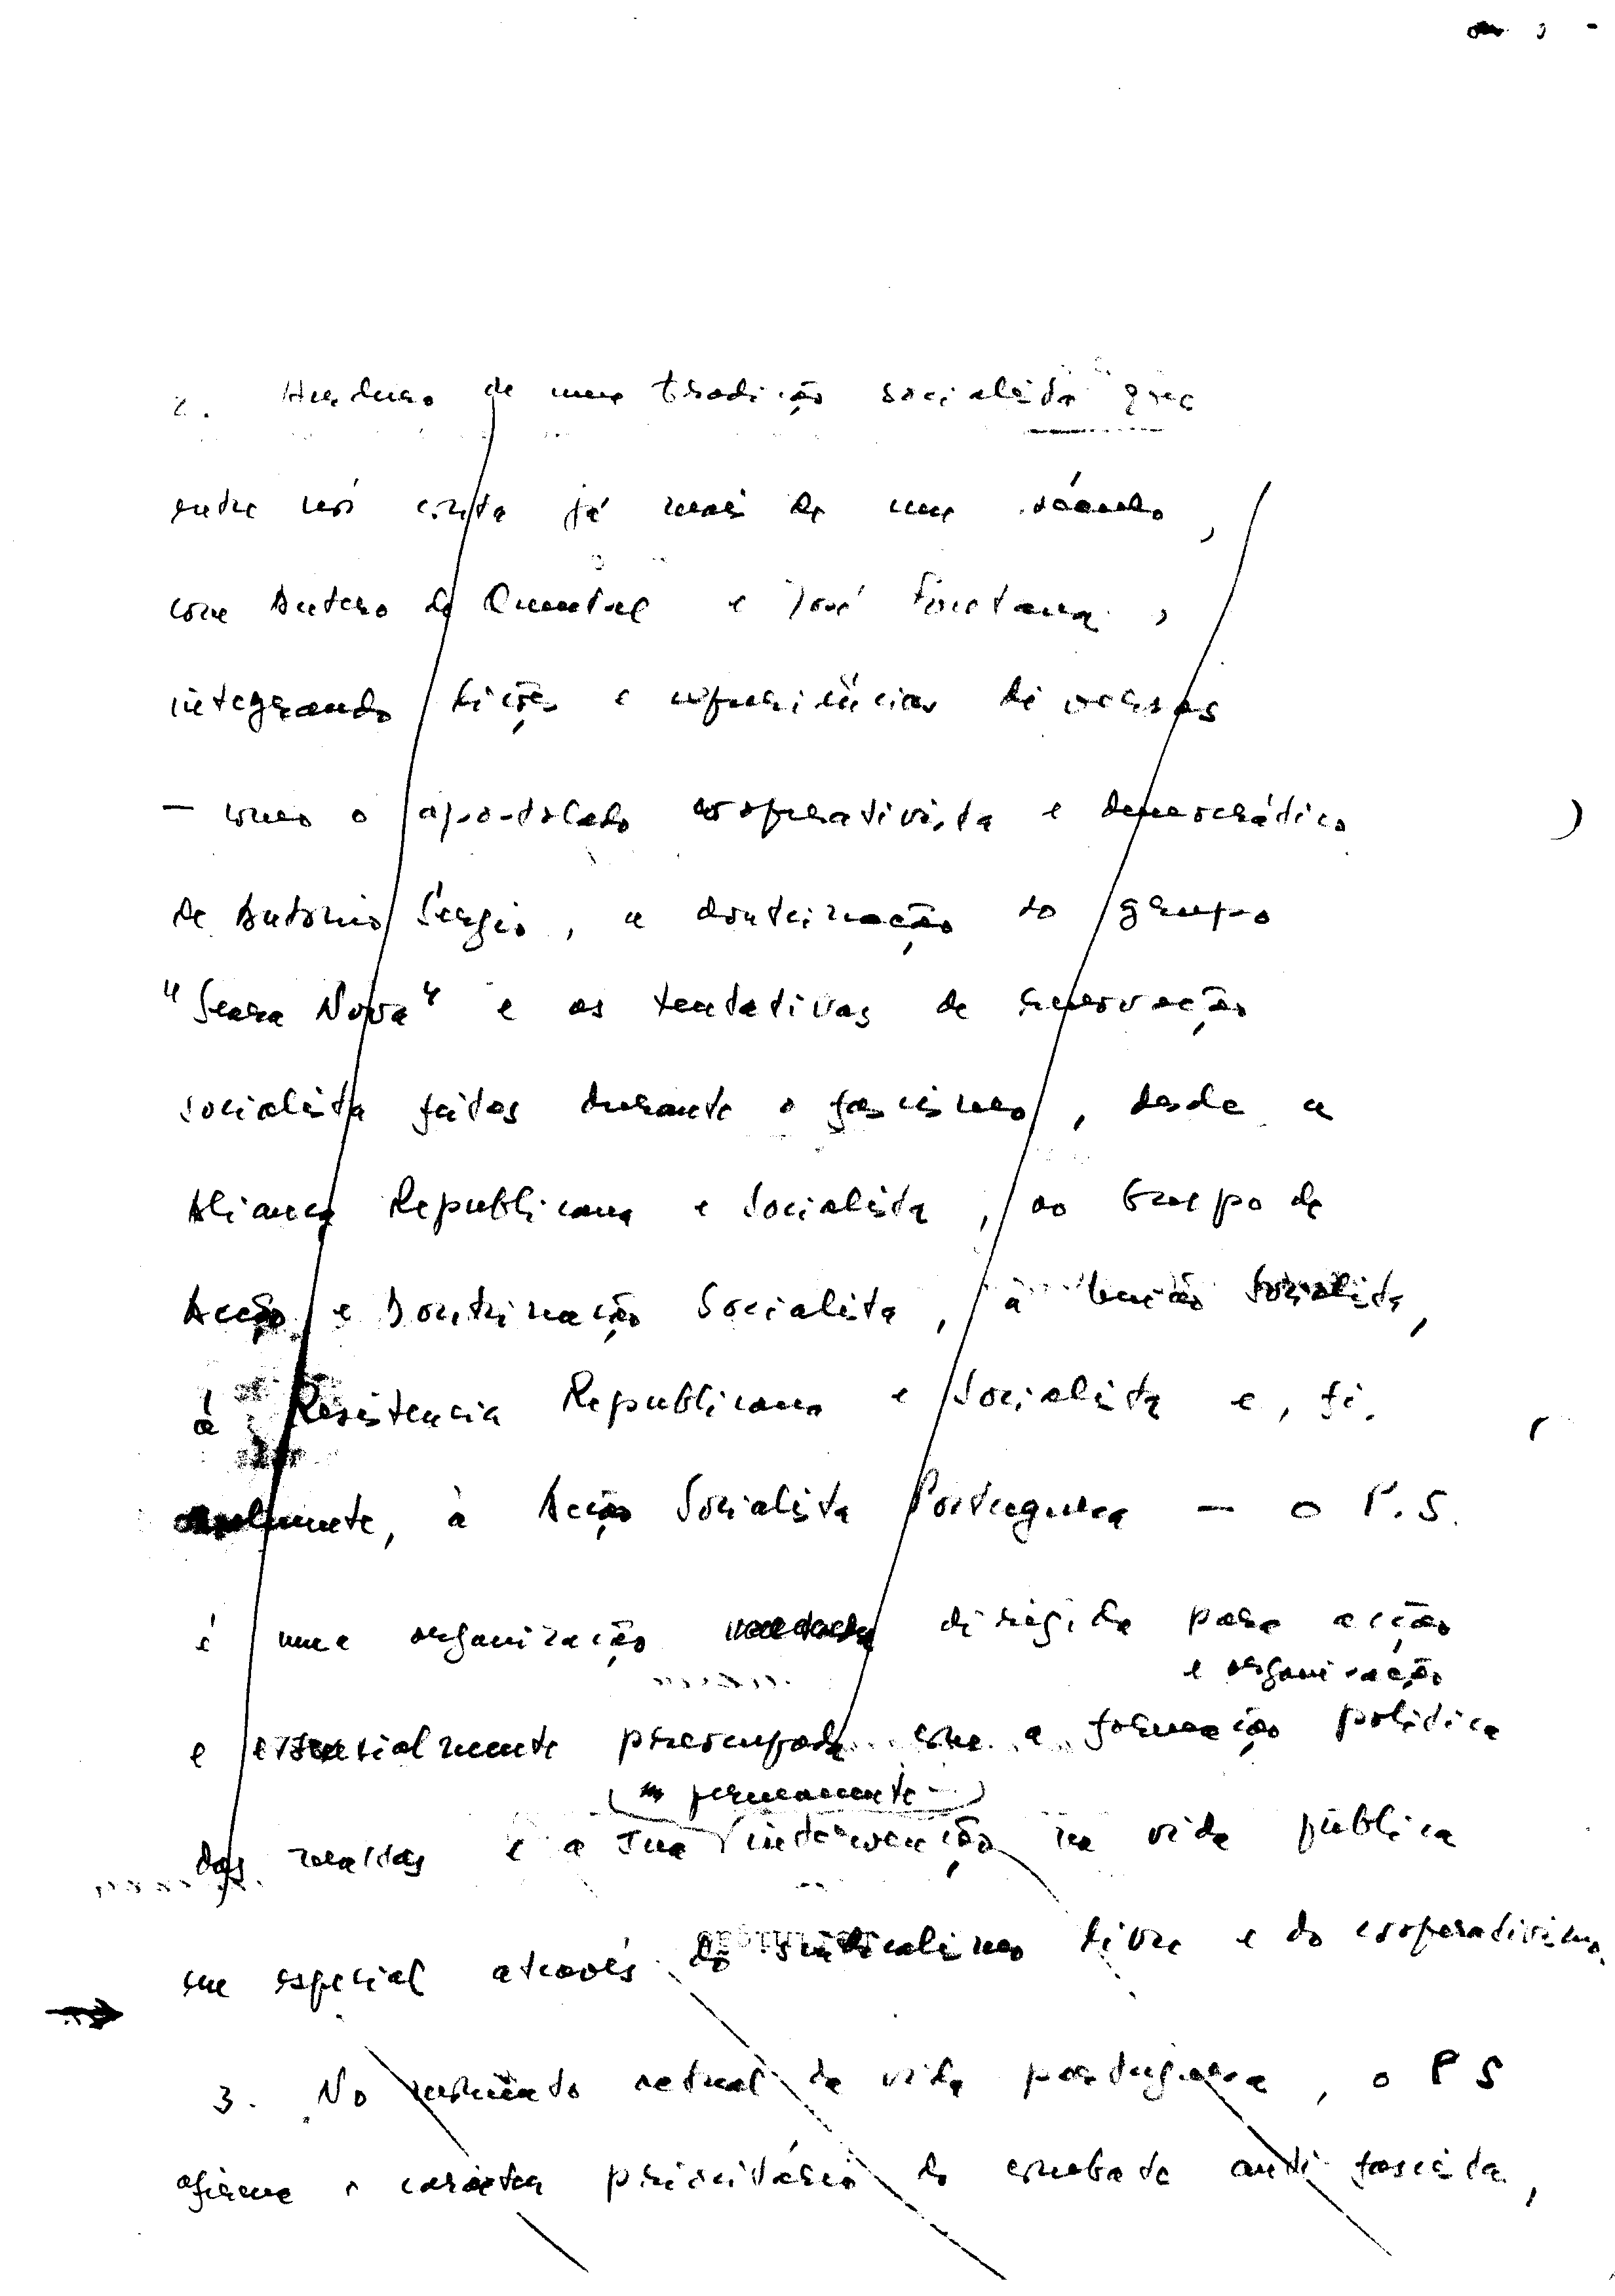 2. Herdeiro de uma tradição socialista que
entre nós conta já mais de um século,
com Antero de Quental e José Fontana,
integrando lições e experiências diversas
— como o apostolado cooperativista e democrático
de António Sérgio, a doutrinação do grupo
"Seara Nova" e as tentativas de renovação
socialista feitas durante o fascismo, desde a
Aliança Republicana e Socialista, ao Grupo de
Acção e Doutrinação Socialista, à União Socialista,
à Resistencia Republicana e Socialista e, fi.
nalmente, à Acção Socialista Portuguesa — o P.S.
é uma organização dirigida para acção
e organização
e essencialmente preocupada com a formação política
permanente
das massas e a sua intervenção na vida pública
em especial através do sindicalismo livre e do cooperativismo.
3. No momento actual da vida portuguesa, o PS
afirma o carácter prioritário do combate anti-fascista,